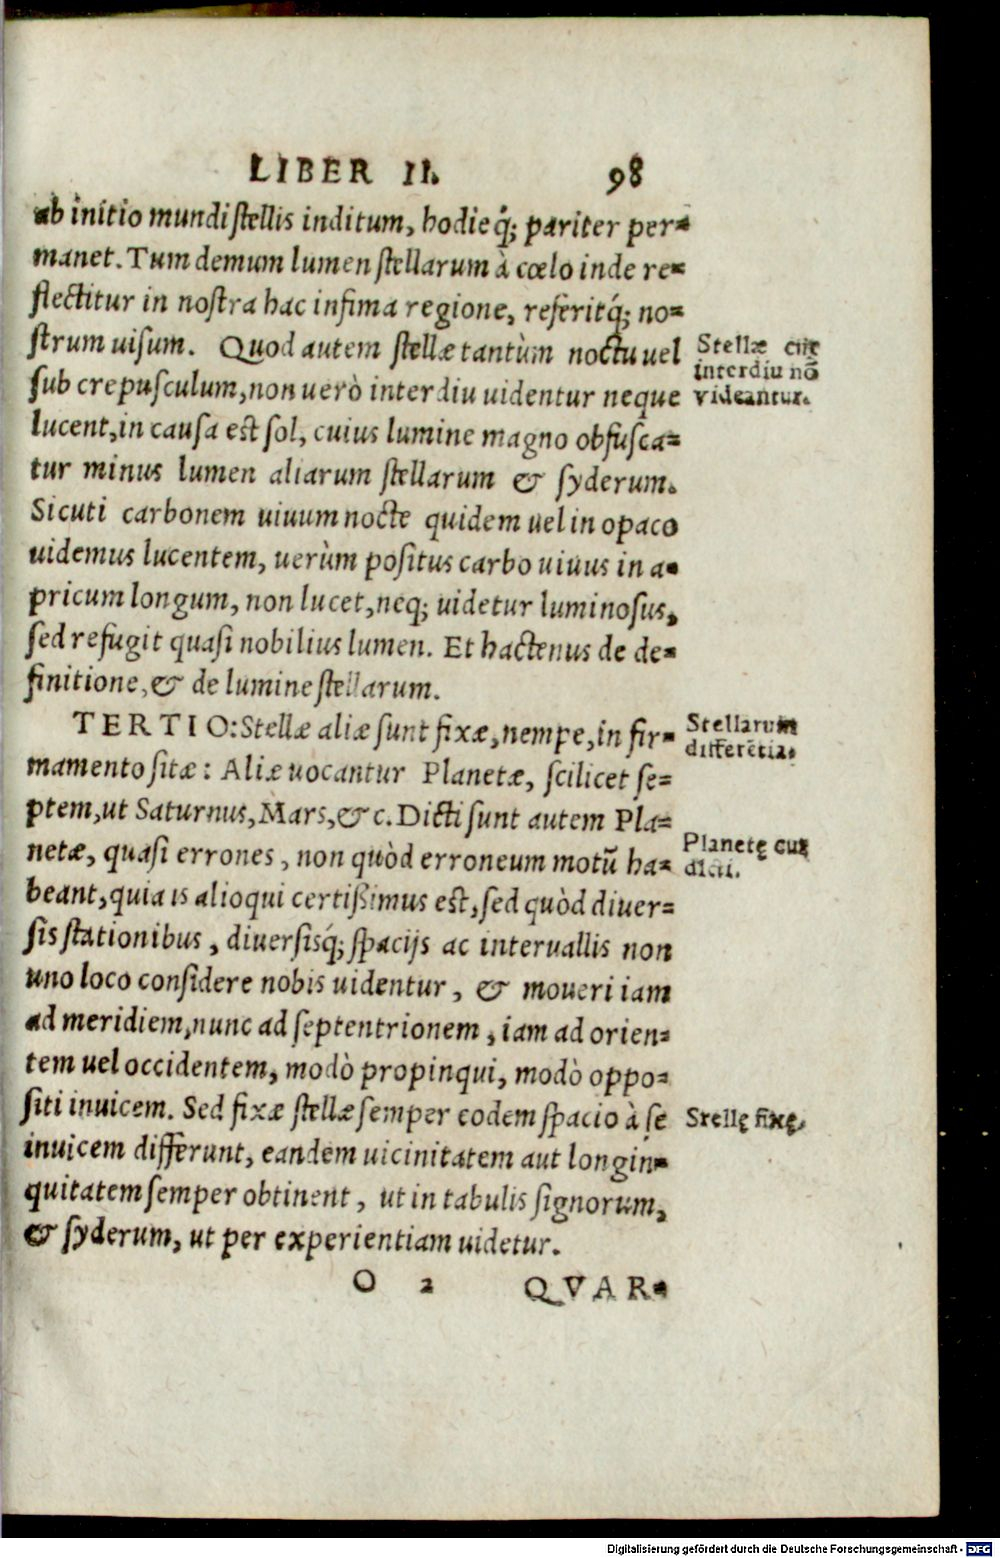 LIBER II. 98
ab initio mundi stellis inditum, hodieq́; pariter per-
manet. Tum demum lumen stellarum à cœlo inde re-
flectitur in nostra hac infima regione, referitq́; no-
strum uisum. Quod autem stellæ tantùm noctu uel
Stellæ cur
interdiu nō
videantur.
sub crepusculum, non uerò interdiu uidentur neque
lucent, in causa est sol, cuius lumine magno obfusca-
tur minus lumen aliarum stellarum & syderum.
Sicuti carbonem uiuum nocte quidem uel in opaco
uidemus lucentem, uerùm positus carbo uiuus in a-
pricum longum, non lucet, neq; uidetur luminosus,
sed refugit quasi nobilius lumen. Et hactenus de de-
finitione, & de lumine stellarum.
TERTIO: Stellæ aliæ sunt fixæ, nempe, in fir-
Stellarum
differētia.
mamento sitæ: Aliæ uocantur Planetæ, scilicet se-
ptem, ut Saturnus, Mars, & c. Dicti sunt autem Pla-
netæ, quasi errones, non quòd erroneum motū ha-
Planetę cur
dicti.
beant, quia is alioqui certißimus est, sed quòd diuer-
sis stationibus, diuersisq́; spacijs ac interuallis non
uno loco considere nobis uidentur, & moueri iam
ad meridiem, nunc ad septentrionem, iam ad orien-
tem uel occidentem, modò propinqui, modò oppo-
siti inuicem. Sed fixæ stellæ semper eodem spacio à se
Stellę fixę.
inuicem differunt, eandem uicinitatem aut longin-
quitatem semper obtinent, ut in tabulis signorum,
& syderum, ut per experientiam uidetur.
O 2 QVAR-
Digitalisierung gefördert durch die Deutsche Forschungsgemeinschaft - DFG